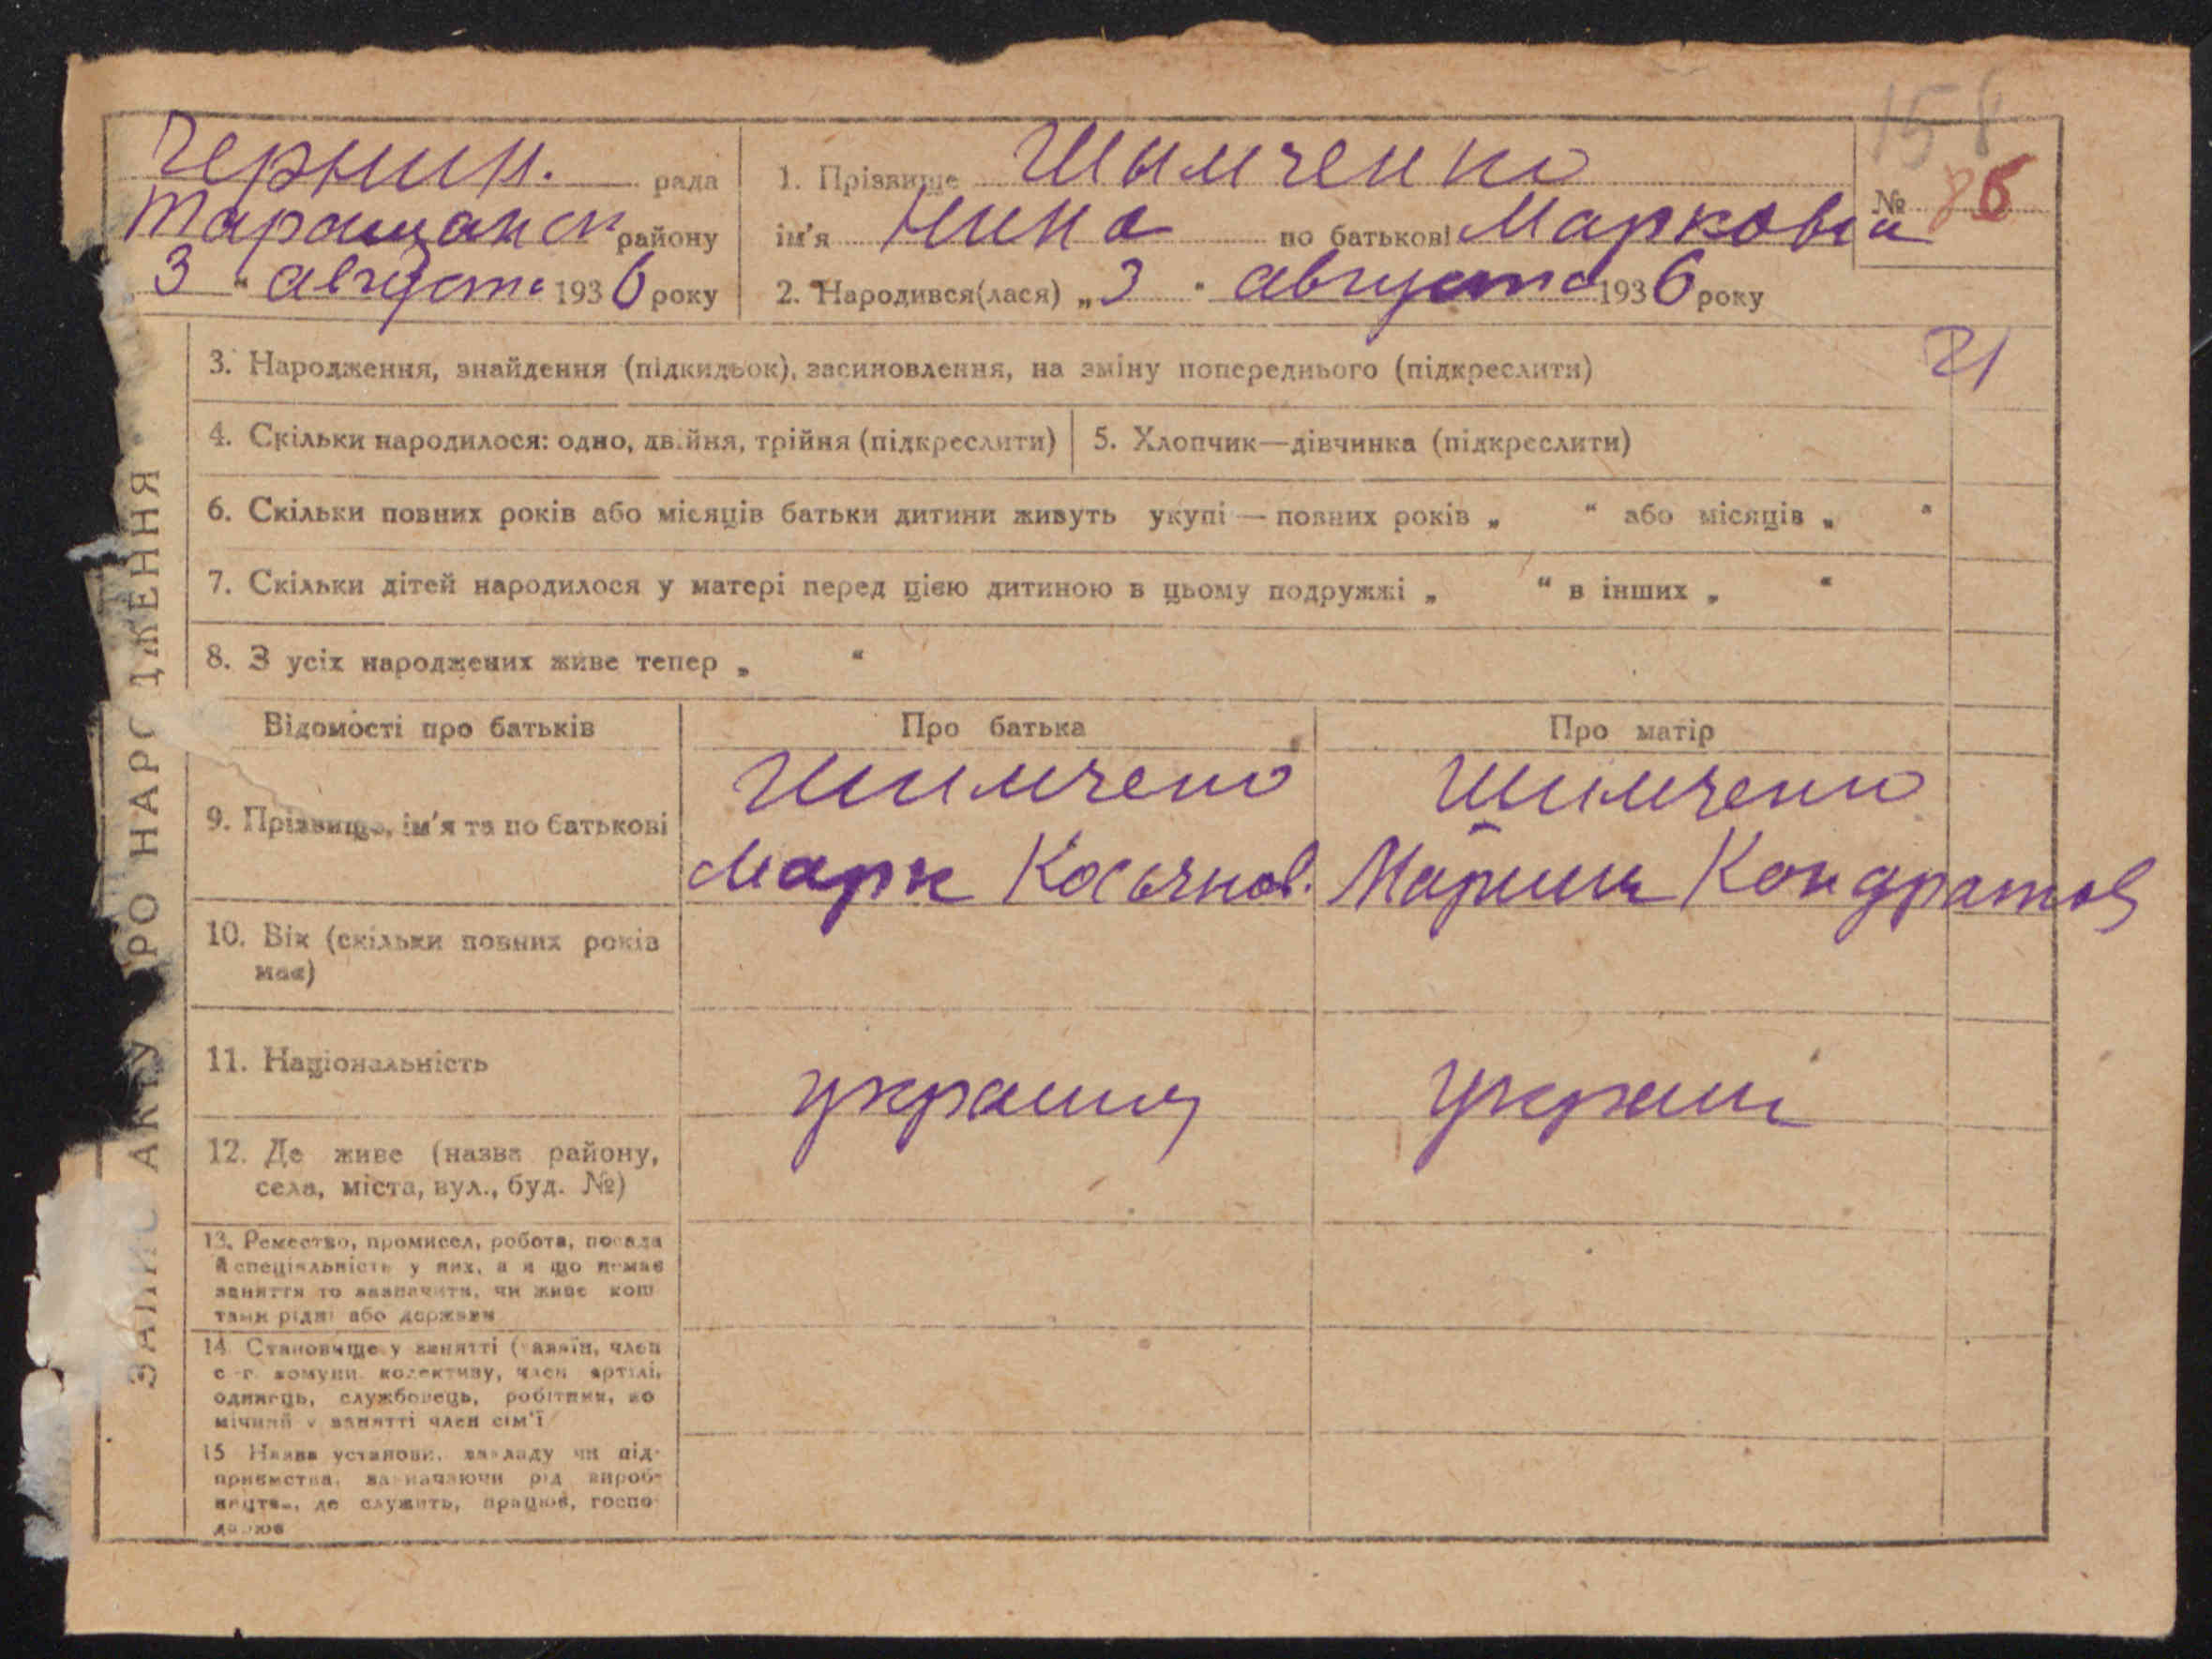 158
Чернин. рада
Таращанск району
3 " август. 1936 року
1. Прізвище Шимченко
ім'я Нина по батькові Марковна
№ 86
2. Народився(лася) „3 " августа 1936 року
21
3. Народження, знайдення (підкидьок), засиновлення, на зміну попереднього (підкреслити)
4. Скільки народилося: одно, двійня, трійня (підкреслити)
5. Хлопчик—дівчинка (підкреслити)
6. Скільки повних років або місяців батьки дитини живуть укупі — повних років „ " або місяців „ "
7. Скільки дітей народилося у матері перед цією дитиною в цьому подружжі „ " в інших „ "
8. З усіх народжених живе тепер „ "
ЗАПИС АКТУ ПРО НАРОДЖЕННЯ
Відомості про батьків
Про батька
Про матір
9. Прізвище, ім'я та по батькові
Шимчено
Марк Косьянов.
Шимченко
Марина Кондратов
10. Вік (скільки повних років
має)
11. Національність
украинц
украин
12. Де живе (назва району,
села, міста, вул., буд. №)
13. Ремество, промисел, робота, посада
й спеціяльність у них, а якщо немає
заняття то зазначити, чи живе кош
тами рідні або держави
14 Становище у занятті (хазяїн, член
с.-г. комуни, колективу, член артілі,
одинець, службовець, робітник, по
мічний у занятті член сім'ї
15 Назва установи, закладу чи під-
приємства, зазначаючи рід вироб-
ництва, де служить, працює, госпо-
дарює